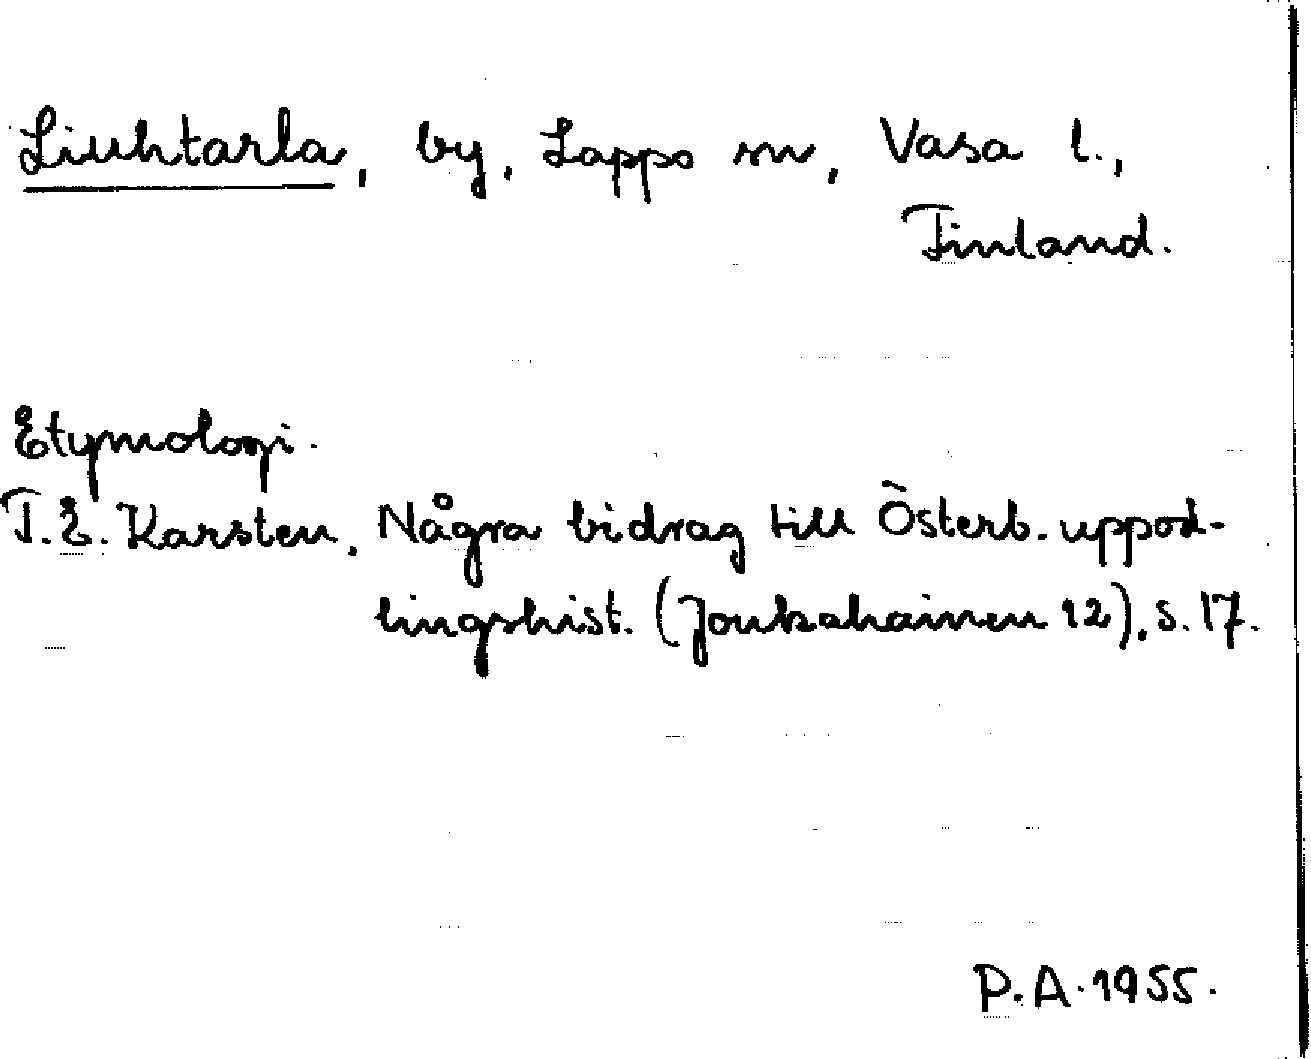 Liuhtarla, by, Lappo sn, Vasa l.,
Finland.
Etymologi.
T.E. Karsten, Några bidrag till Österb. uppod-
lingshist. (Joukahainen 12), s. 17.
P.A. 1955.